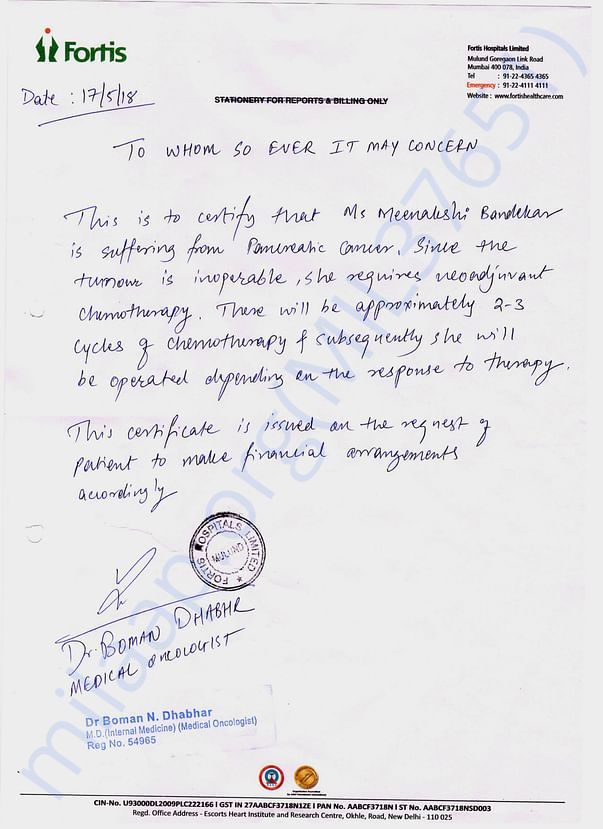 Fortis
Fortis Hospitals Limited
Mulund Goregaon Link Road
Mumbai 400 078, India
Tel : 91-22-4365 4365
Emergency : 91-22-4111 4111
Website : www.fortishealthcare.com
Date : 17/5/18
STATIONERY FOR REPORTS & BILLING ONLY
TO WHOM SO EVER IT MAY CONCERN
This is to certify that Ms Meenakshi Bandekar
is suffering from Pancreatic Cancer. Since the
tumour is inoperable, she requires neoadjuvant
chemotherapy. There will be approximately 2-3
cycles of chemotherapy & subsequently she will
be operated depending on the response to therapy.
This certificate is issued on the request of
patient to make financial arrangements
accordingly
FORTIS HOSPITALS LIMITED
MULUND
Dr. BOMAN DHABHR
MEDICAL ONCOLOGIST
Dr Boman N. Dhabhar
M.D.(Internal Medicine) (Medical Oncologist)
Reg No. 54965
CIN-No. U93000DL2009PLC222166 I GST IN 27AABCF3718N1ZE I PAN No. AABCF3718N I ST No. AABCF3718NSD003
Regd. Office Address - Escorts Heart Institute and Research Centre, Okhle, Road, New Delhi - 110 025